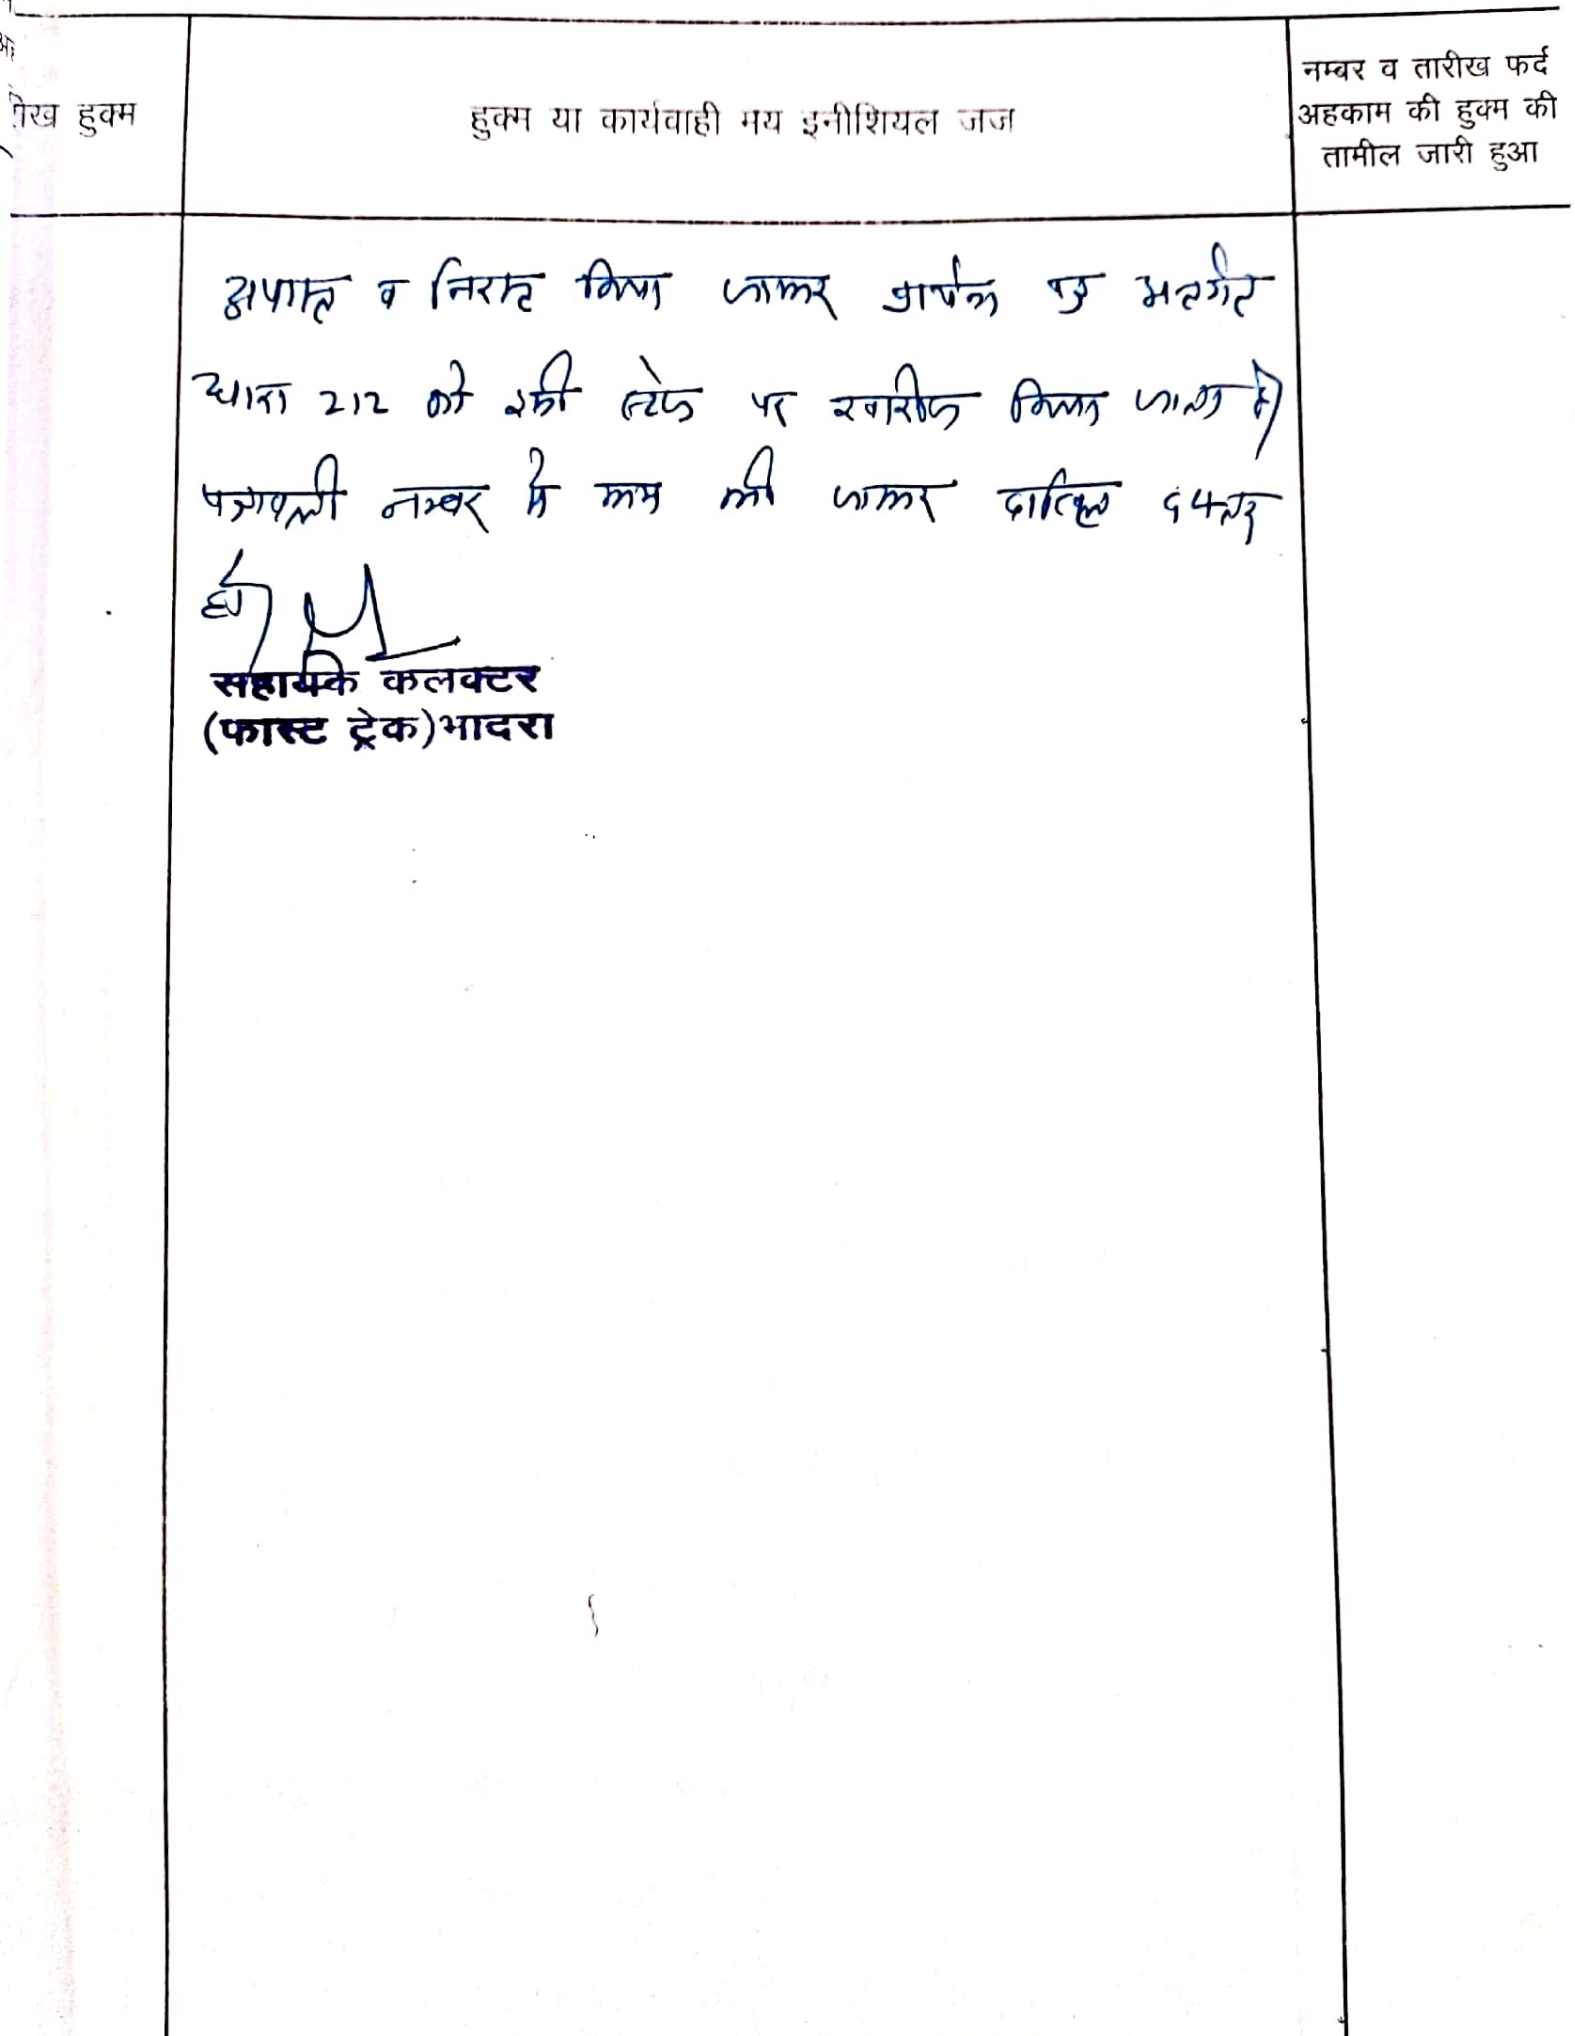 तारीख हुक्म
हुक्म या कार्यवाही मय इनीशियल जज
नम्बर व तारीख फर्द
अहकाम की हुक्म की
तामील जारी हुआ
अपास्त व निरस्त किया जाकर प्रार्थना पत्र अन्तर्गत
धारा 212 को इसी स्टेज पर खारीज किया जाता है।
पत्रावली नम्बर से कम की जाकर दाखिल दफ्तर
हो।
सहायक कलक्टर
(फास्ट ट्रेक) भादरा